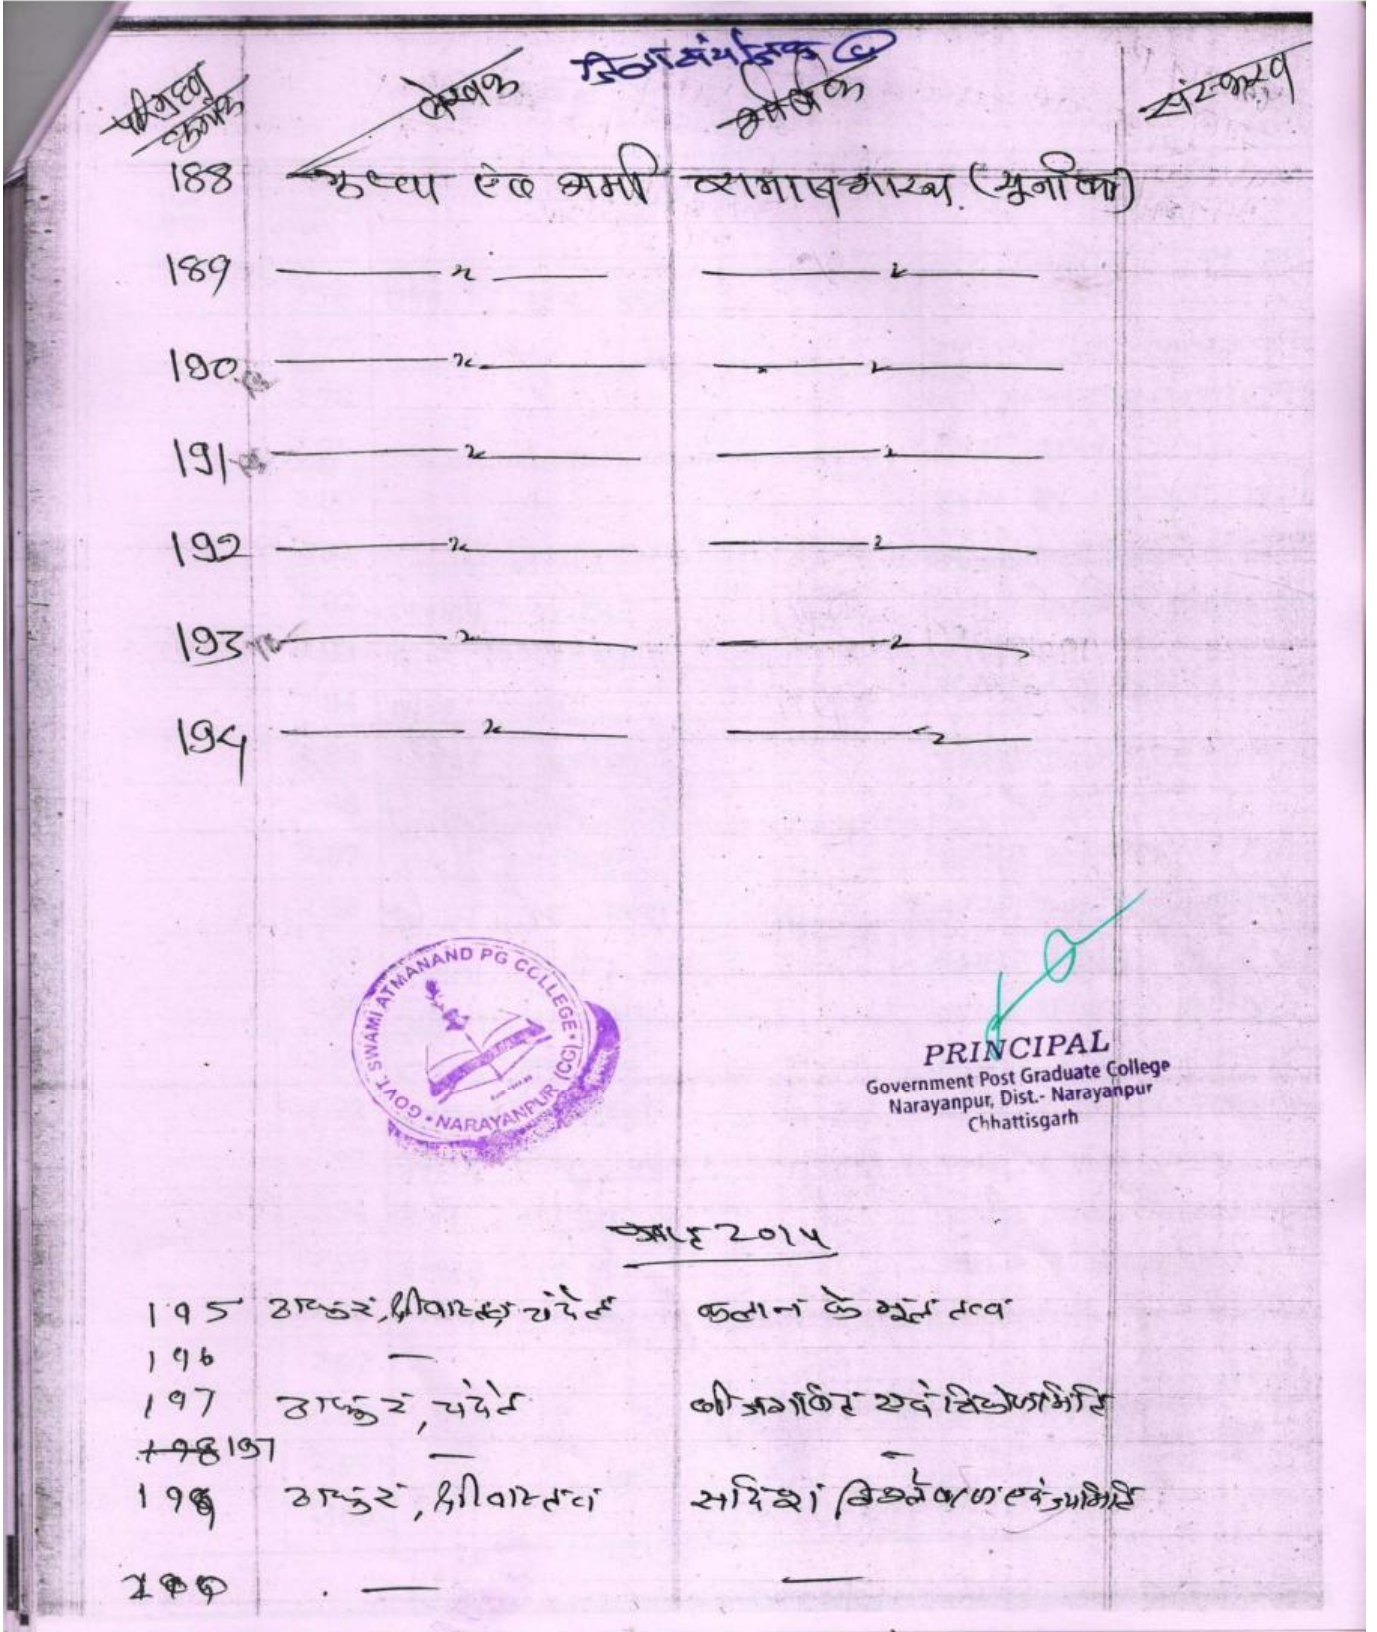 परिग्रहण क्रमांक लेखक शीर्षक संस्करण
188 गुप्ता एंव शर्मा समाजशास्त्र (यूनीक)
189 〃 〃
190 〃 〃
191 〃 〃
192 〃 〃
193 〃 〃
194 〃 〃
GOVT. SWAMI ATMANAND PG COLLEGE
NARAYANPUR (CG)
PRINCIPAL
Government Post Graduate College
Narayanpur, Dist.- Narayanpur
Chhattisgarh
2014
195 ठाकुर, श्रीवास्तव, चंदेल कलन के मूल तत्व
196 —
197 ठाकुर, चंदेल बीजगणित एवं त्रिकोणमिति
198 197 — —
199 ठाकुर, श्रीवास्तव सदिश विश्लेषण एवं ज्यामिति
200 — —